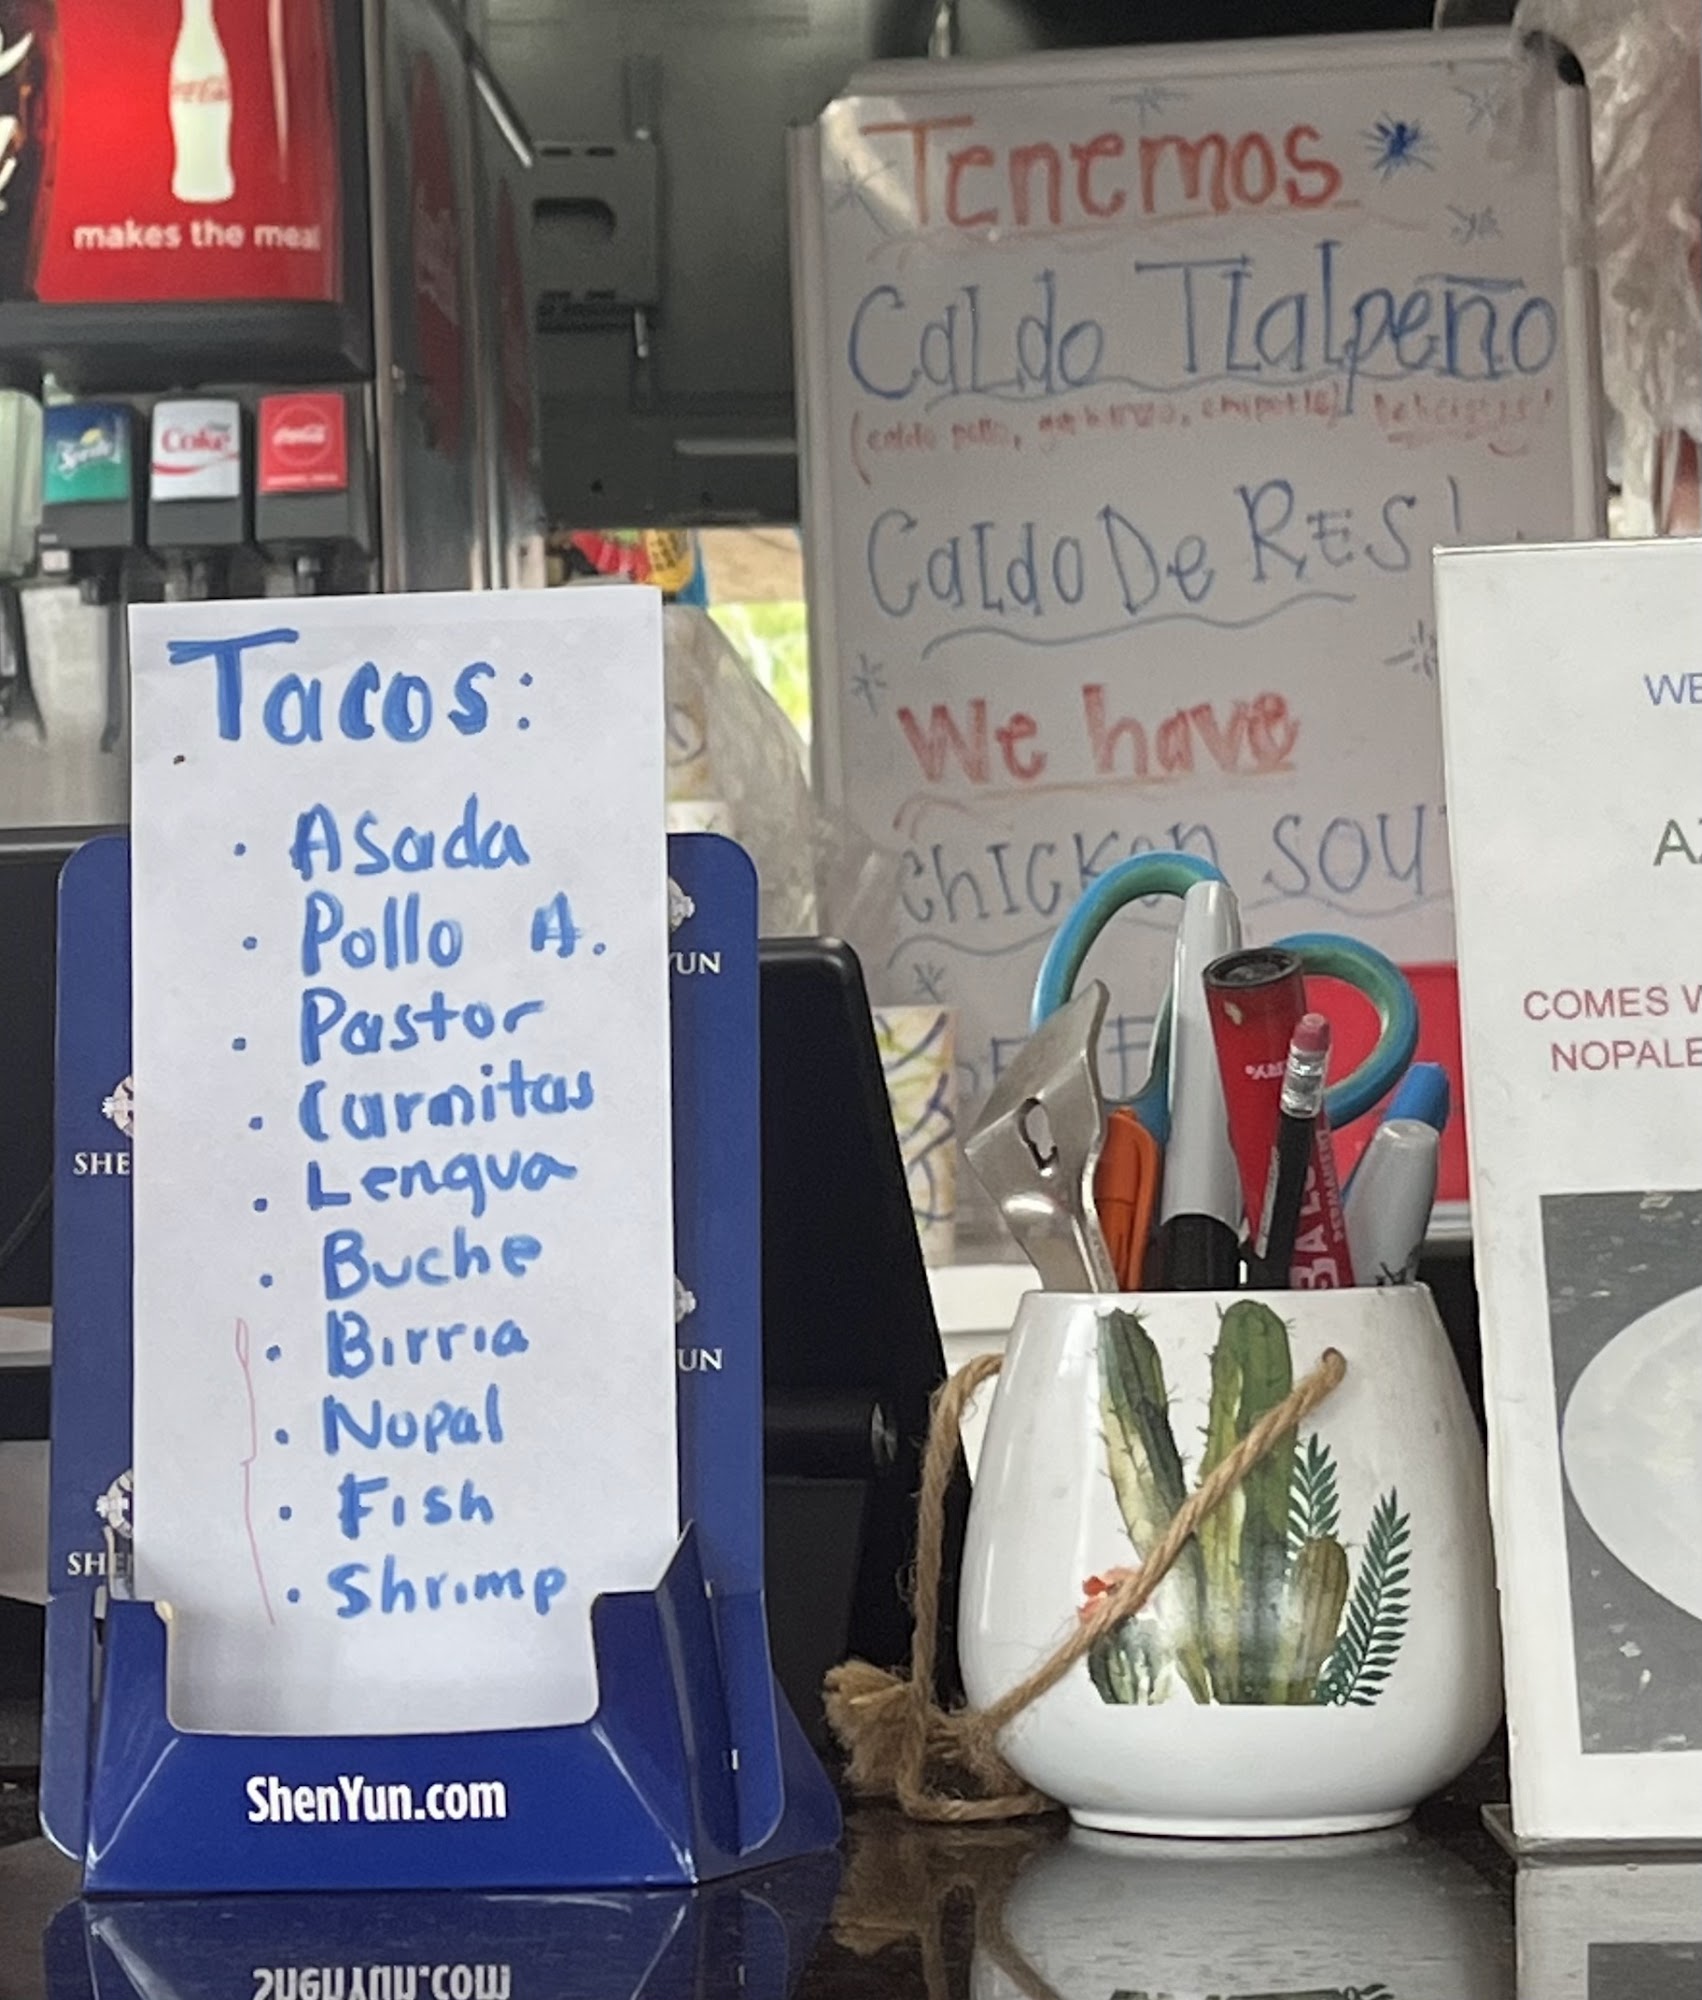 makes the meal
Sprite
Coke
Tenemos
Caldo Tlalpeño
(caldo pollo, garbanzo, chipotle) Delicioso!
Caldo De RES!
We have
CHICKEN SOU
Tacos:
· Asada
· Pollo A.
· Pastor
· Carnitas
· Lengua
· Buche
· Birria
· Nopal
· Fish
· Shrimp
SHE
YUN
UN
SHEN
ShenYun.com
WE
AZ
COMES W
NOPALE